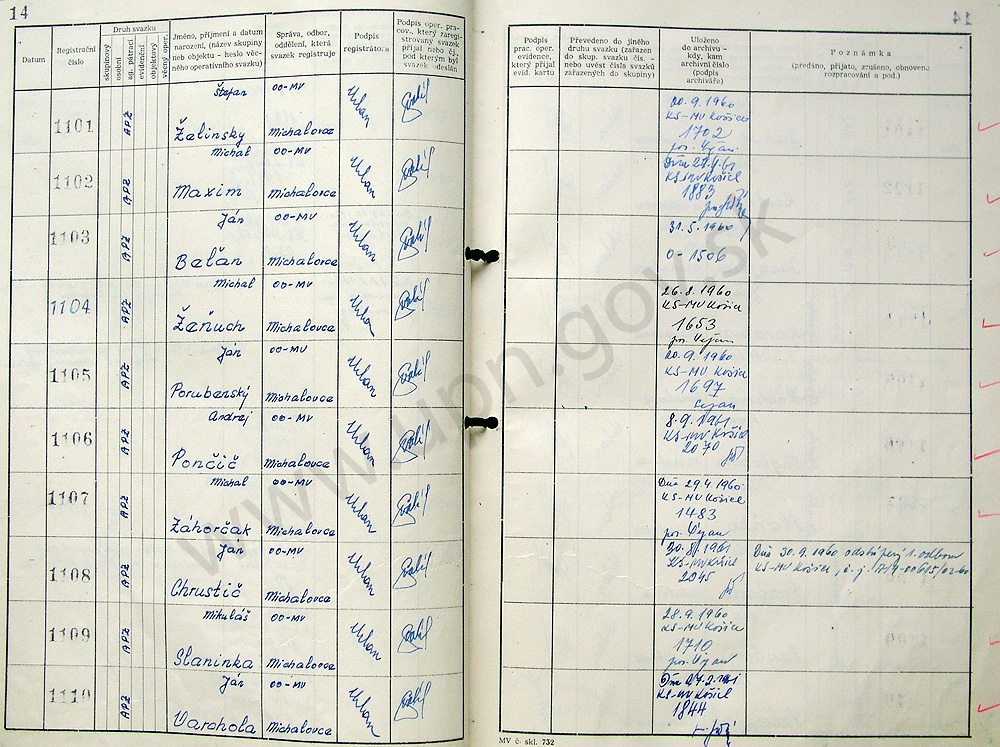 14
Datum
Registrační číslo
Druh svazku
skupinový
osobní
ag. pátrací
evidenční
objektový
věcný oper.
Jméno, příjmení a datum
narození, (název skupiny
neb objektu - heslo věc-
ného operativního svazku)
Správa, odbor,
oddělení, která
svazek registruje
Podpis
registrátora
Podpis oper. pra-
cov., který zaregi-
strovaný svazek
přijal nebo čj.
pod kterým byl
svazek odeslán
1101 APZ Štefan 00-MV
Želinsky Michalovce Urban
1102 APZ Michal 00-MV
Maxim Michalovce Urban
1103 APZ Ján 00-MV
Beľan Michalovce Urban
1104 APZ Michal 00-MV
Žeňuch Michalovce Urban
1105 APZ Ján 00-MV
Porubenský Michalovce Urban
1106 APZ Andrej 00-MV
Pončič Michalovce Urban
1107 APZ Michal 00-MV
Záhorčak Michalovce Urban
1108 APZ Ján 00-MV
Chrustič Michalovce Urban
1109 APZ Mikuláš 00-MV
Slaninka Michalovce Urban
1110 APZ Ján 00-MV
Varchola Michalovce Urban
Podpis
prac. oper.
evidence,
který přijal
evid. kartu
Převedeno do jiného
druhu svazku (zařazen
do skup. svazku čís. -
nebo uvést čísla svazků
zařazených do skupiny)
Uloženo
do archivu -
kdy, kam
archivní číslo
(podpis
archiváře)
Poznámka
(předšno, přijato, zrušeno, obnoveno
rozpracování a pod.)
20.9.1960
KS-MV Košice
1702
KS-MV Košice
1883
31.5.1960
0-1506
26.8.1960
KS-MV Košice
1653
20.9.1960
KS-MV Košice
1697
8.9.1961
KS-MV Košice
2070
Dňa 29.4.1960
KS-MV Košice
1483
30.8.1961
KS-MV Košice
2045
Dňa 30.9.1960 odstúpený 1. odboru
KS-MV Košice, č.j.
28.9.1960
KS-MV Košice
1710
KS-MV Košice
1844
MV č. skl. 732
www.upn.gov.sk